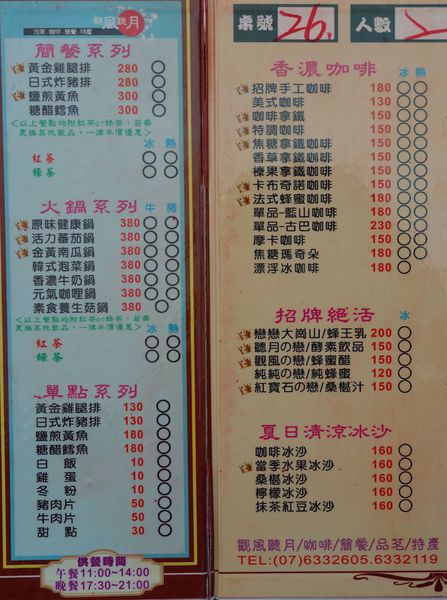 觀風聽月
泡茶·咖啡·簡餐·特產
簡餐系列
黃金雞腿排 280
日式炸豬排 280
鹽煎黃魚 300
糖醋鱈魚 300
<以上餐點均附紅茶or綠茶，若需
更換其他飲品，一律半價優惠>
冰 熱
紅茶
綠茶
火鍋系列 牛 豬
原味健康鍋 380
活力蕃茄鍋 380
金黃南瓜鍋 380
韓式泡菜鍋 380
香濃牛奶鍋 380
元氣咖哩鍋 380
素食養生菇鍋 380
<以上餐點均附紅茶or綠茶，若需
更換其他飲品，一律半價優惠>
冰 熱
紅茶
綠茶
單點系列
黃金雞腿排 130
日式炸豬排 130
鹽煎黃魚 180
糖醋鱈魚 180
白飯 10
雞蛋 10
冬粉 10
豬肉片 50
牛肉片 50
甜點 30
供餐時間
午餐11:00~14:00
晚餐17:30~21:00
桌號 26. 人數
香濃咖啡 冰 熱
招牌手工咖啡 180
美式咖啡 130
咖啡拿鐵 150
特調咖啡 150
焦糖拿鐵咖啡 150
香草拿鐵咖啡 150
榛果拿鐵咖啡 150
卡布奇諾咖啡 150
法式蜂蜜咖啡 150
單品-藍山咖啡 180
單品-古巴咖啡 230
摩卡咖啡 150
焦糖瑪奇朵 180
漂浮冰咖啡 180
招牌絕活 冰
戀戀大崗山/蜂王乳 200
聽月の戀/酵素飲品 150
觀風の戀/蜂蜜醋 150
純純の戀/純蜂蜜 120
紅寶石の戀/桑椹汁 150
夏日清涼冰沙
咖啡冰沙 160
當季水果冰沙 160
桑椹冰沙 160
檸檬冰沙 160
抹茶紅豆冰沙 160
觀風聽月/咖啡/簡餐/品茗/特產
TEL:(07)6332605.6332119